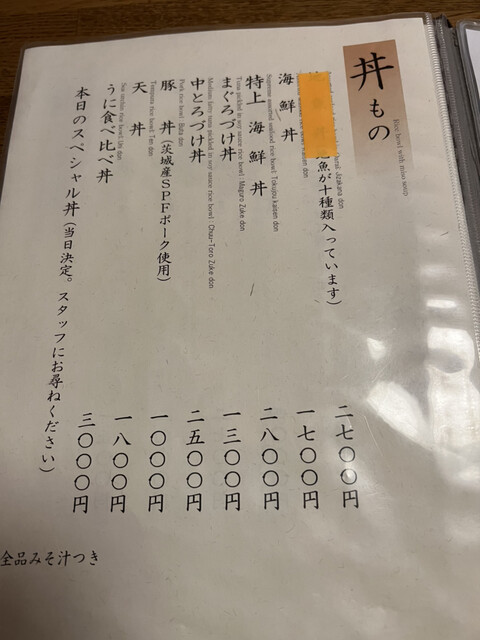 丼もの
Rice bowl with miso soup
魚が十種類入っています)
Jizakana don
二七〇〇円
海鮮丼
一七〇〇円
特上海鮮丼
Supreme assorted seafood rice bowl : Tokujou kaisen don
二八〇〇円
まぐろづけ丼
Tuna pickled in soy sauce rice bowl : Maguro Zuke don
一三〇〇円
中とろづけ丼
Medium fatty tuna pickled in soy sauce rice bowl : Chuu-Toro Zuke don
二五〇〇円
豚丼(茨城産SPFポーク使用)
Pork rice bowl : Buta don
一〇〇〇円
天丼
Tempura rice bowl : Ten don
一八〇〇円
うに食べ比べ丼
Sea urchin rice bowl : Uni don
三〇〇〇円
本日のスペシャル丼(当日決定。スタッフにお尋ねください)
全品みそ汁つき